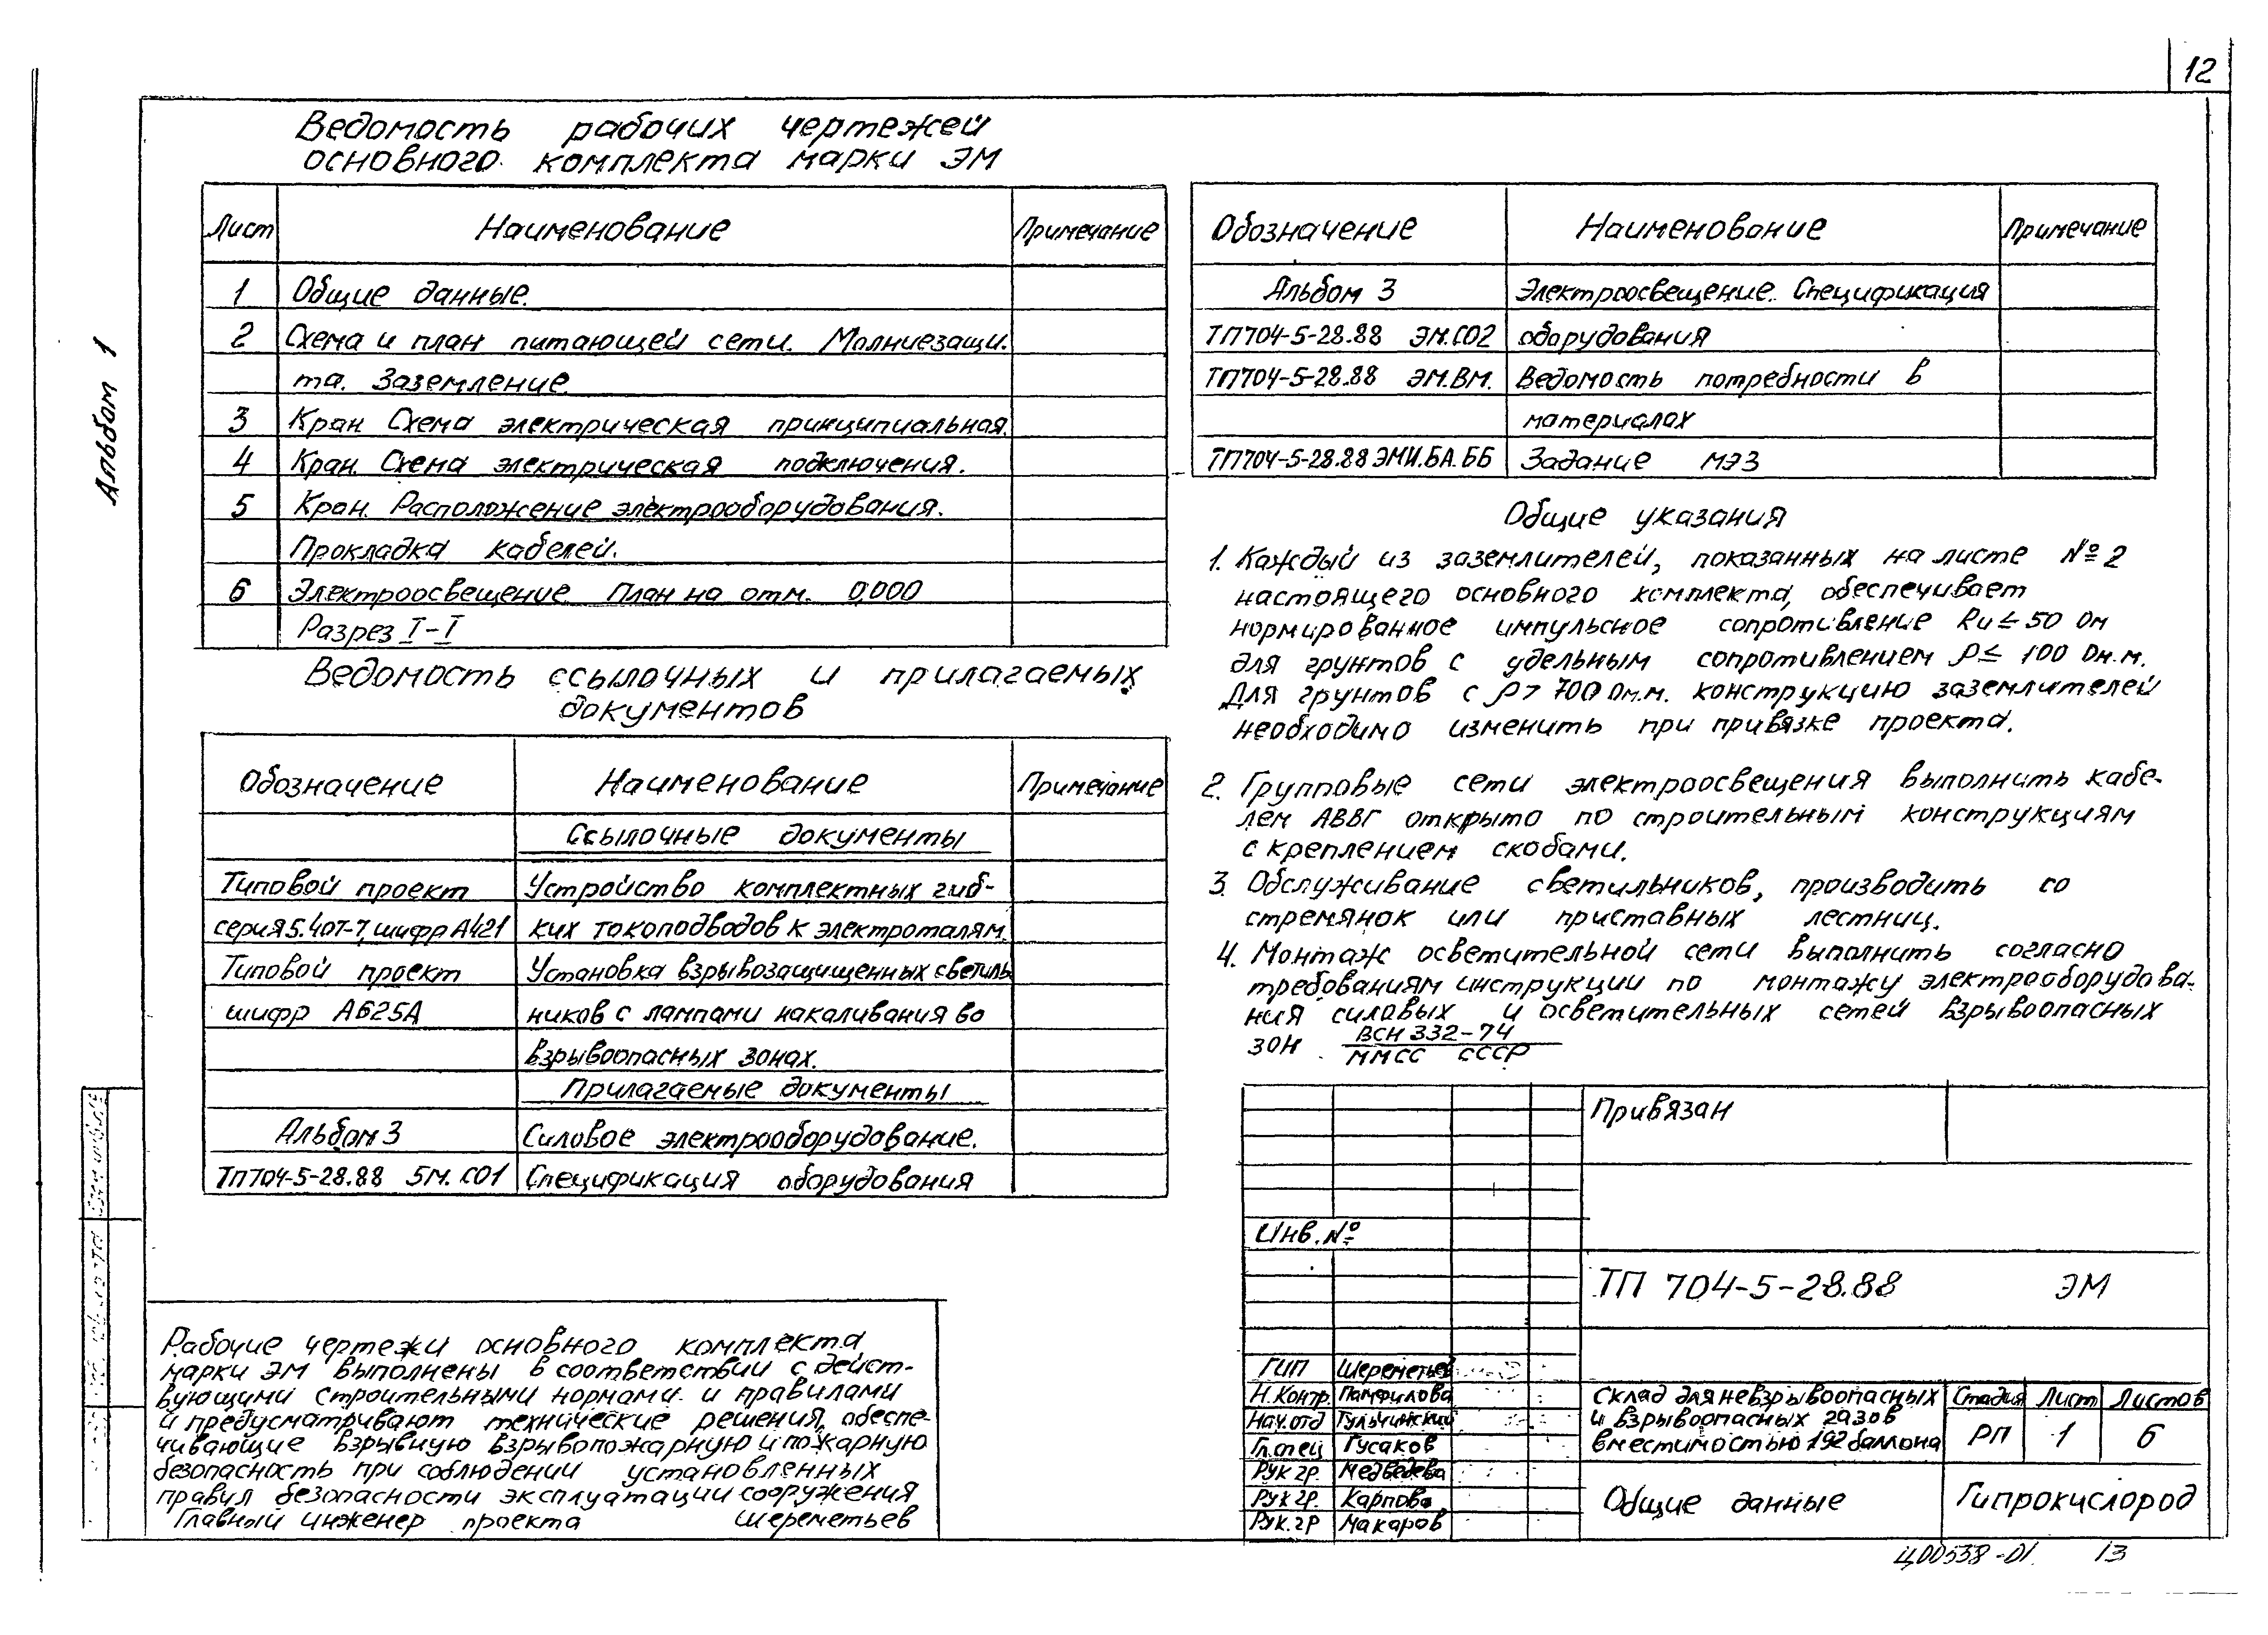 12
Альбом 1
Ведомость рабочих чертежей
основного комплекта марки ЭМ
Лист Наименование Примечание
1 Общие данные.
2 Схема и план питающей сети. Молниезащи-
та. Заземление.
3 Кран Схема электрическая принципиальная.
4 Кран. Схема электрическая подключения.
5 Кран. Расположение электрооборудования.
Прокладка кабелей.
6 Электроосвещение. План на отм. 0.000
Разрез I-I
Ведомость ссылочных и прилагаемых
документов
Обозначение Наименование Примечание
Ссылочные документы
Типовой проект Устройство комплектных гиб-
серия 5.407-7, шифр А421 ких токоподводов к электроталям.
Типовой проект Установка взрывозащищенных светиль
шифр А625А ников с лампами накаливания во
взрывоопасных зонах.
Прилагаемые документы
Альбом 3 Силовое электрооборудование.
ТП704-5-28.88 5М.СО1 Спецификация оборудования
Обозначение Наименование Примечание
Альбом 3 Электроосвещение. Спецификация
ТП704-5-28.88 ЭМ.СО2 оборудования
ТП704-5-28.88 ЭМ.ВМ. Ведомость потребности в
материалах
ТП704-5-28.88 ЭМИ.БА.ББ Задание МЭЗ
Общие указания
1. Каждый из заземлителей, показанных на листе №2
настоящего основного комплекта, обеспечивает
нормированное импульсное сопротивление Rи ≤ 50 Ом
для грунтов с удельным сопротивлением ρ ≤ 100 Ом.м.
Для грунтов с ρ > 700 Ом.м. конструкцию заземлителей
необходимо изменить при привязке проекта.
2. Групповые сети электроосвещения выполнить кабе-
лем АВВГ открыто по строительным конструкциям
с креплением скобами.
3. Обслуживание светильников, производить со
стремянок или приставных лестниц.
4. Монтаж осветительной сети выполнить согласно
требованиям инструкции по монтажу электрооборудова-
ния силовых и осветительных сетей взрывоопасных
зон ВСН 332-74
ММСС СССР
Рабочие чертежи основного комплекта
марки ЭМ выполнены в соответствии с дейст-
вующими строительными нормами и правилами
и предусматривают технические решения, обеспе-
чивающие взрывную взрывопожарную и пожарную
безопасность при соблюдении установленных
правил безопасности эксплуатации сооружения
Главный инженер проекта Шереметьев
Привязан
Инв. №
ТП 704-5-28.88 ЭМ
ГИП Шереметьев
Н.Контр. Памфилова
Нач.отд Тульчинский
Гл.спец Гусаков
Рук гр. Медведева
Рук гр. Карпова
Рук.гр Макаров
Склад для невзрывоопасных
и взрывоопасных газов
вместимостью 192 баллона
Стадия Лист Листов
РП 1 6
Общие данные
Гипрокислород
Ц00538-01 13